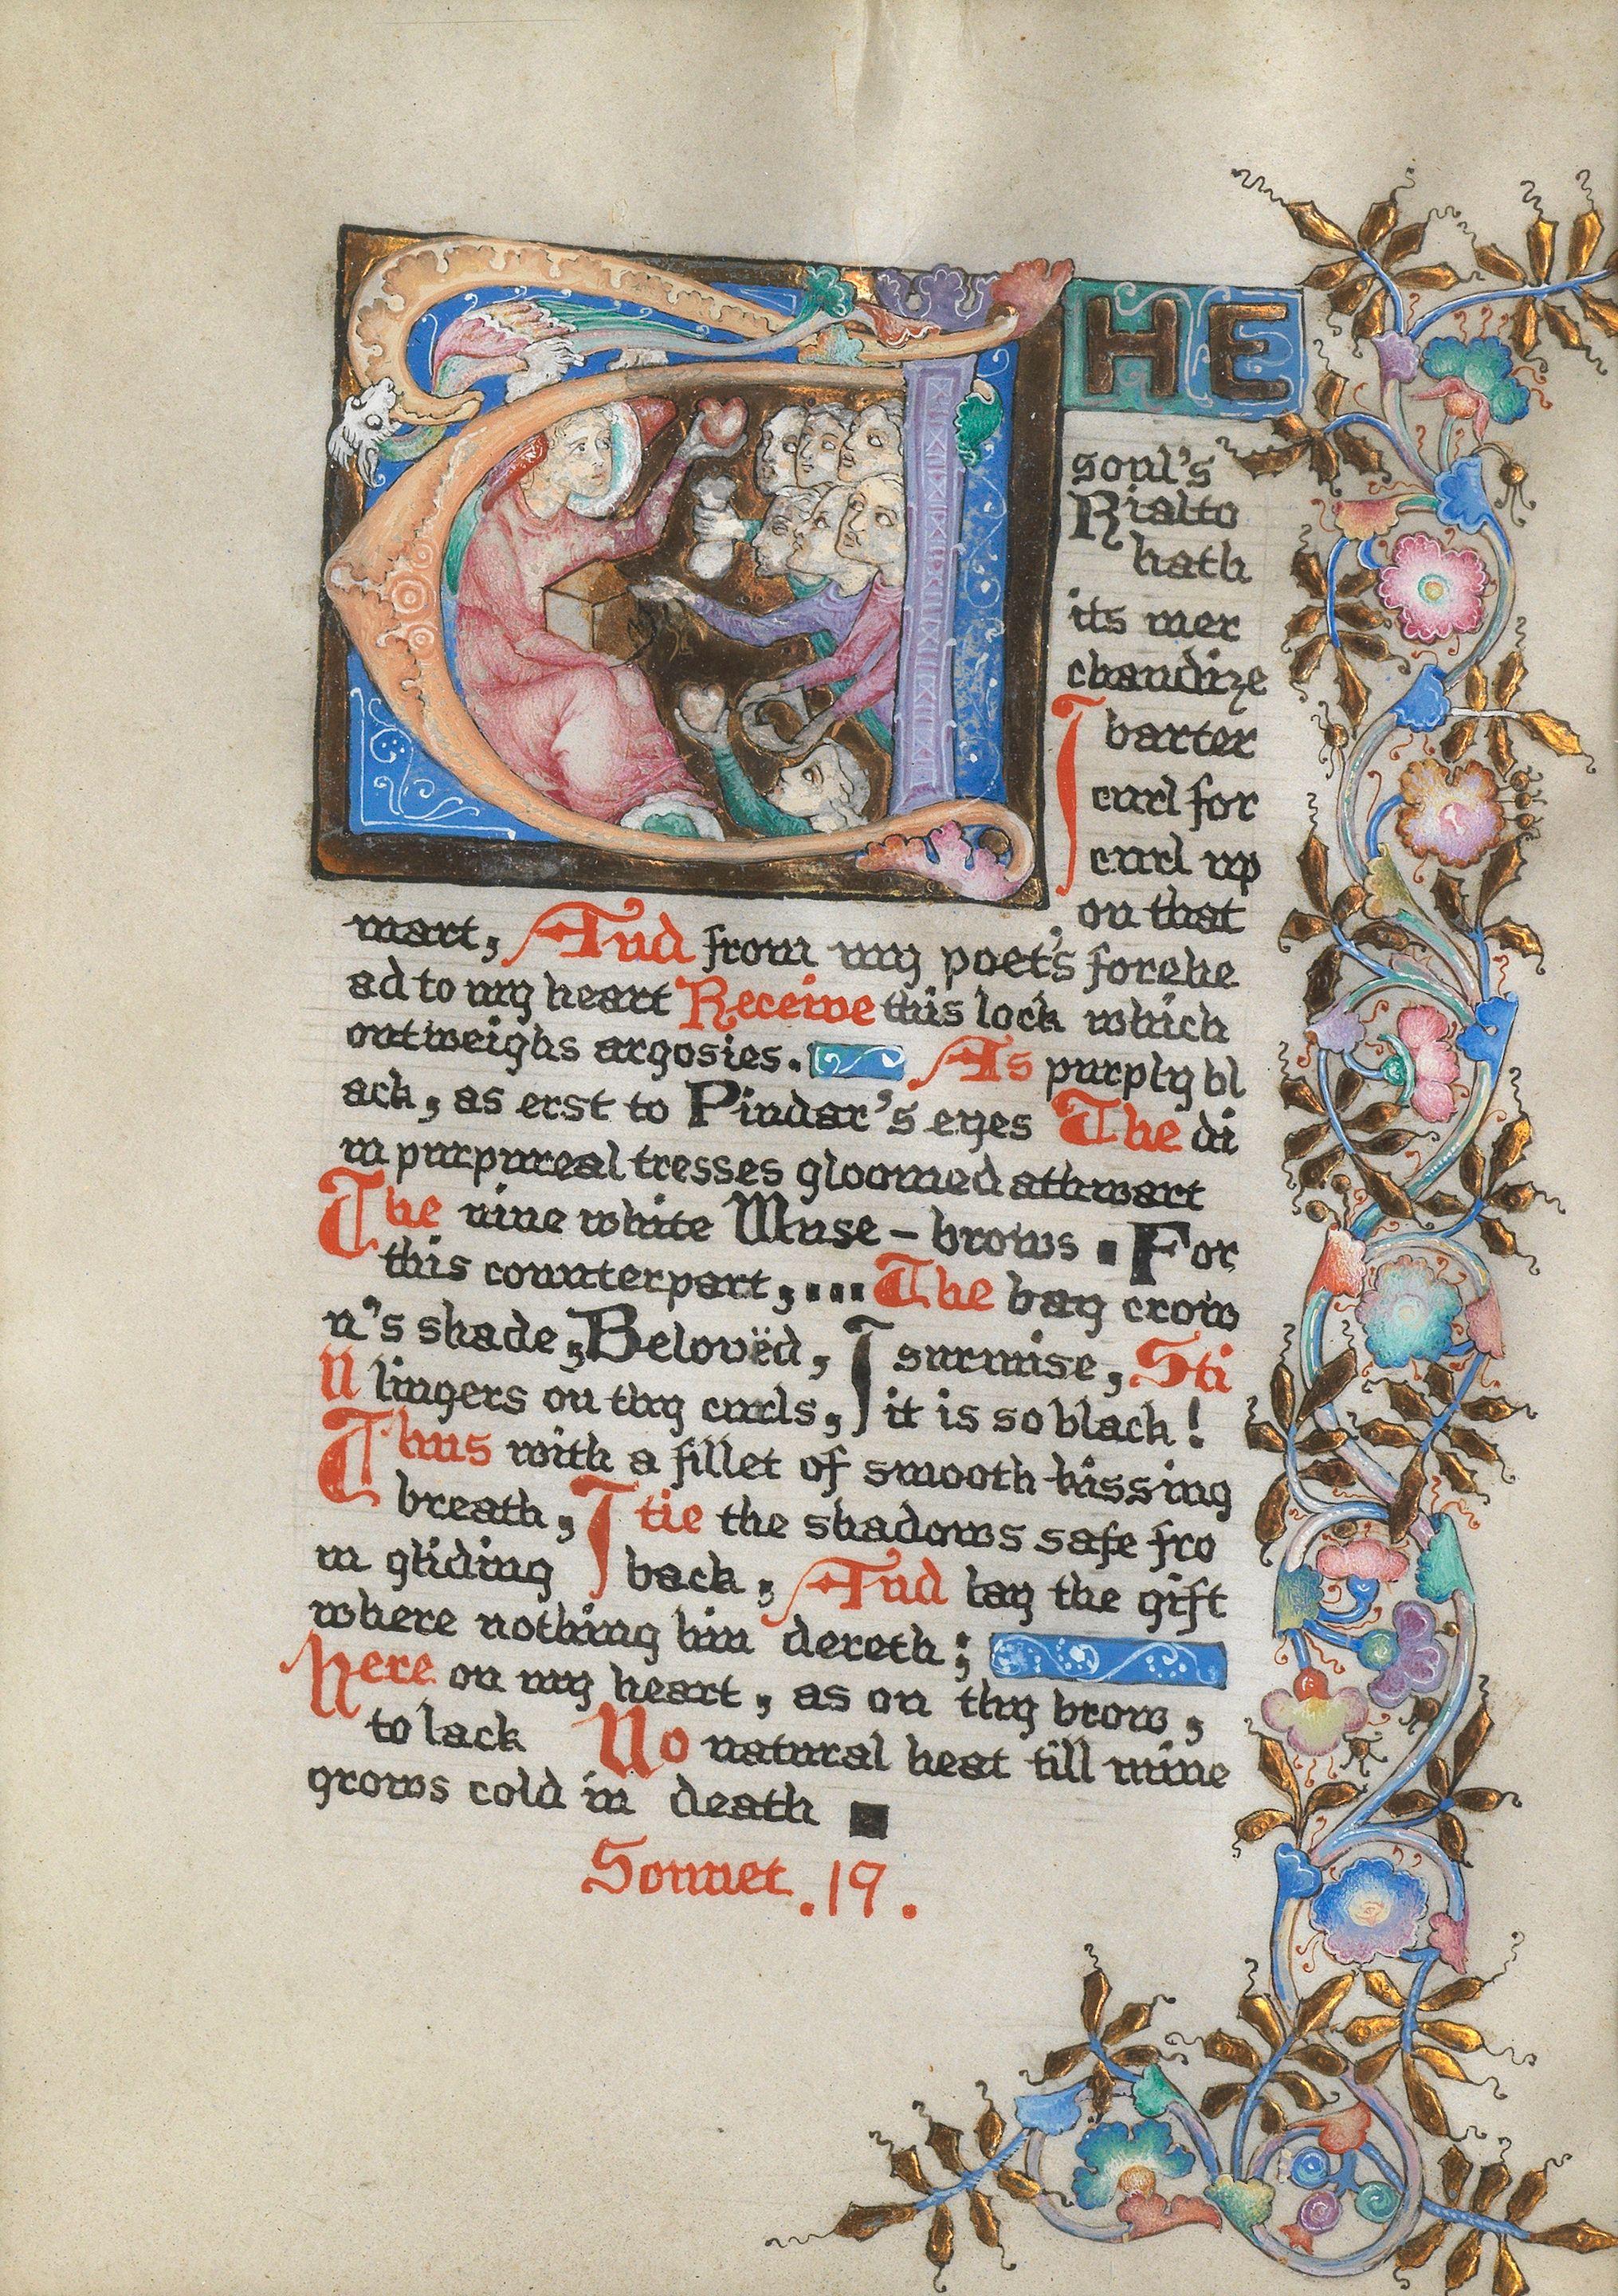 THE
soul's
Rialto
hath
its mer
chandize
I barter
curl for
curl up
on that
mart, And from my poet's forehe
ad to my heart Receive this lock which
outweighs argosies. As purply bl
ack, as erst to Pindar's eyes The di
m purpureal tresses gloomed athwart
The nine white Muse-brows. For
this counterpart, ... The bay crow
n's shade, Belovëd, I surmise, Sti
ll lingers on thy curls, it is so black!
Thus with a fillet of smooth-kissing
breath, I tie the shadows safe fro
m gliding back, And lay the gift
where nothing hin dereth;
Here on my heart, as on thy brow,
to lack No natural heat till mine
grows cold in death
Sonnet. 19.